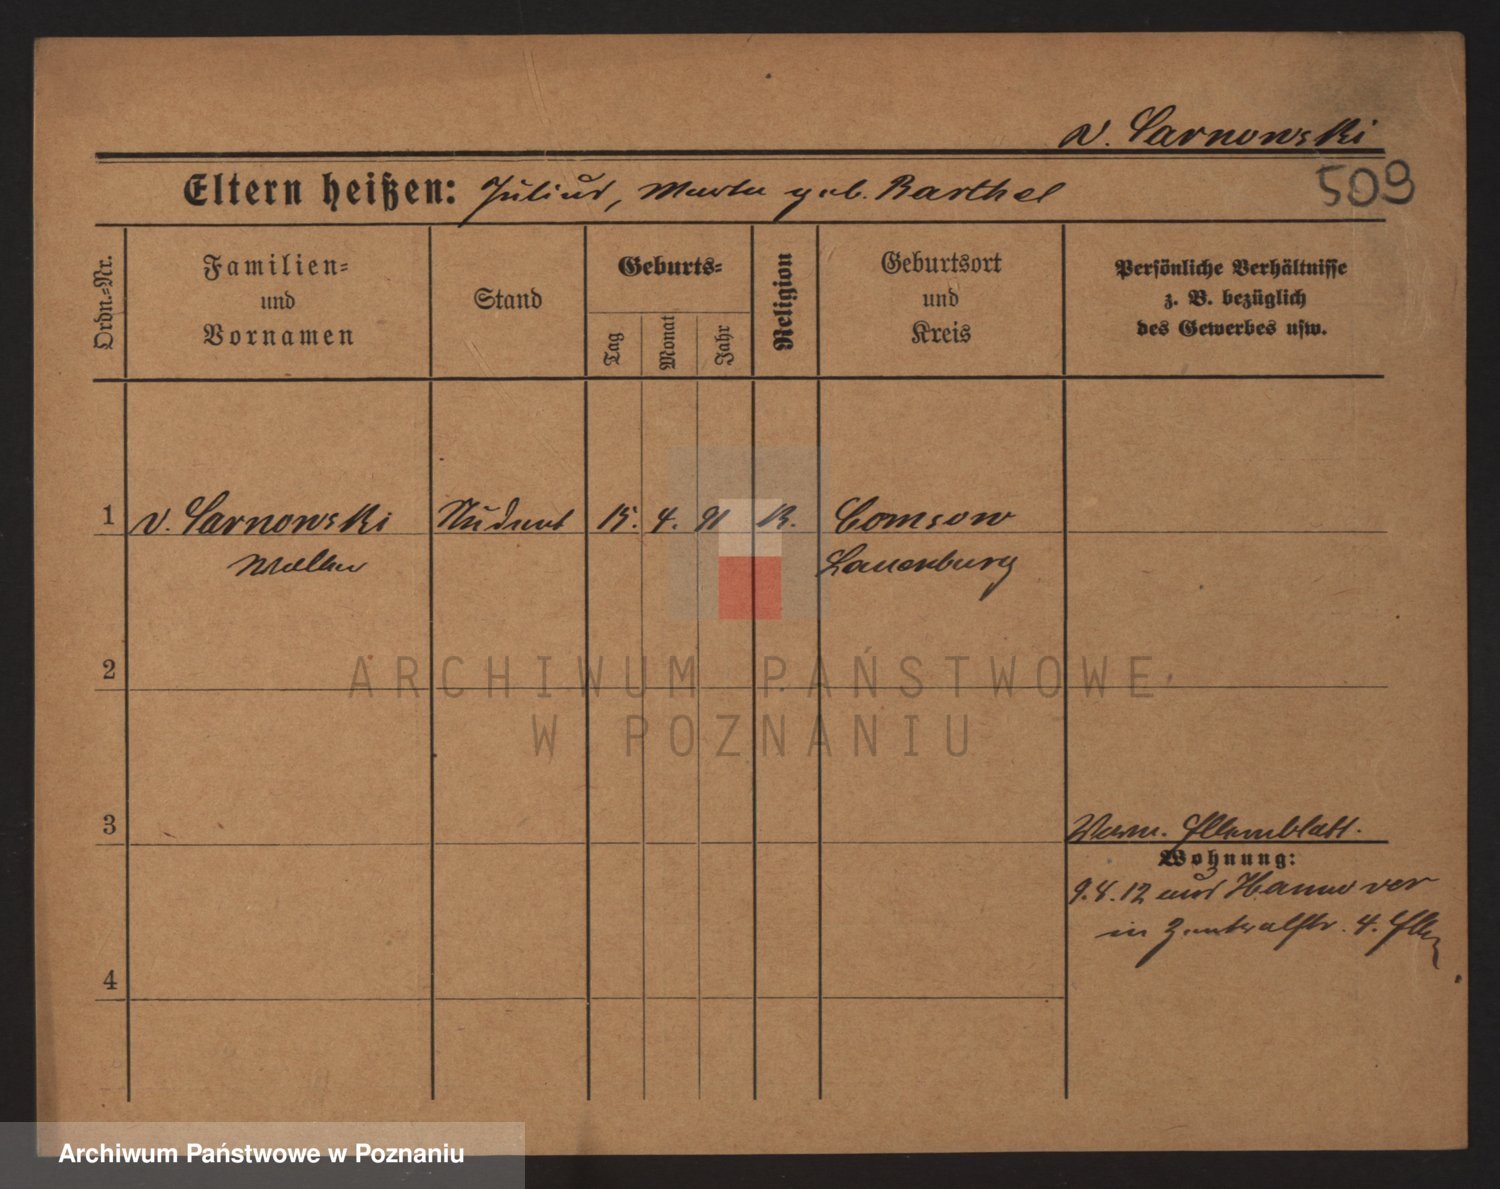 v. Sarnowski
509
Eltern heißen: Julius, Marta geb. Barthel
Ordn.-Nr.
Familien-
und
Vornamen
Stand
Geburts-
Tag
Monat
Jahr
Religion
Geburtsort
und
Kreis
Persönliche Verhältnisse
z. B. bezüglich
des Gewerbes usw.
1 v. Sarnowski Student 15. 4. 91 K. Comsow
Lauenburg
2
ARCHIWUM PAŃSTWOWE
W POZNANIU
3
Wohnung:
9.8.12 aus Hannover
in Zentralstr. 4.
4
Archiwum Państwowe w Poznaniu